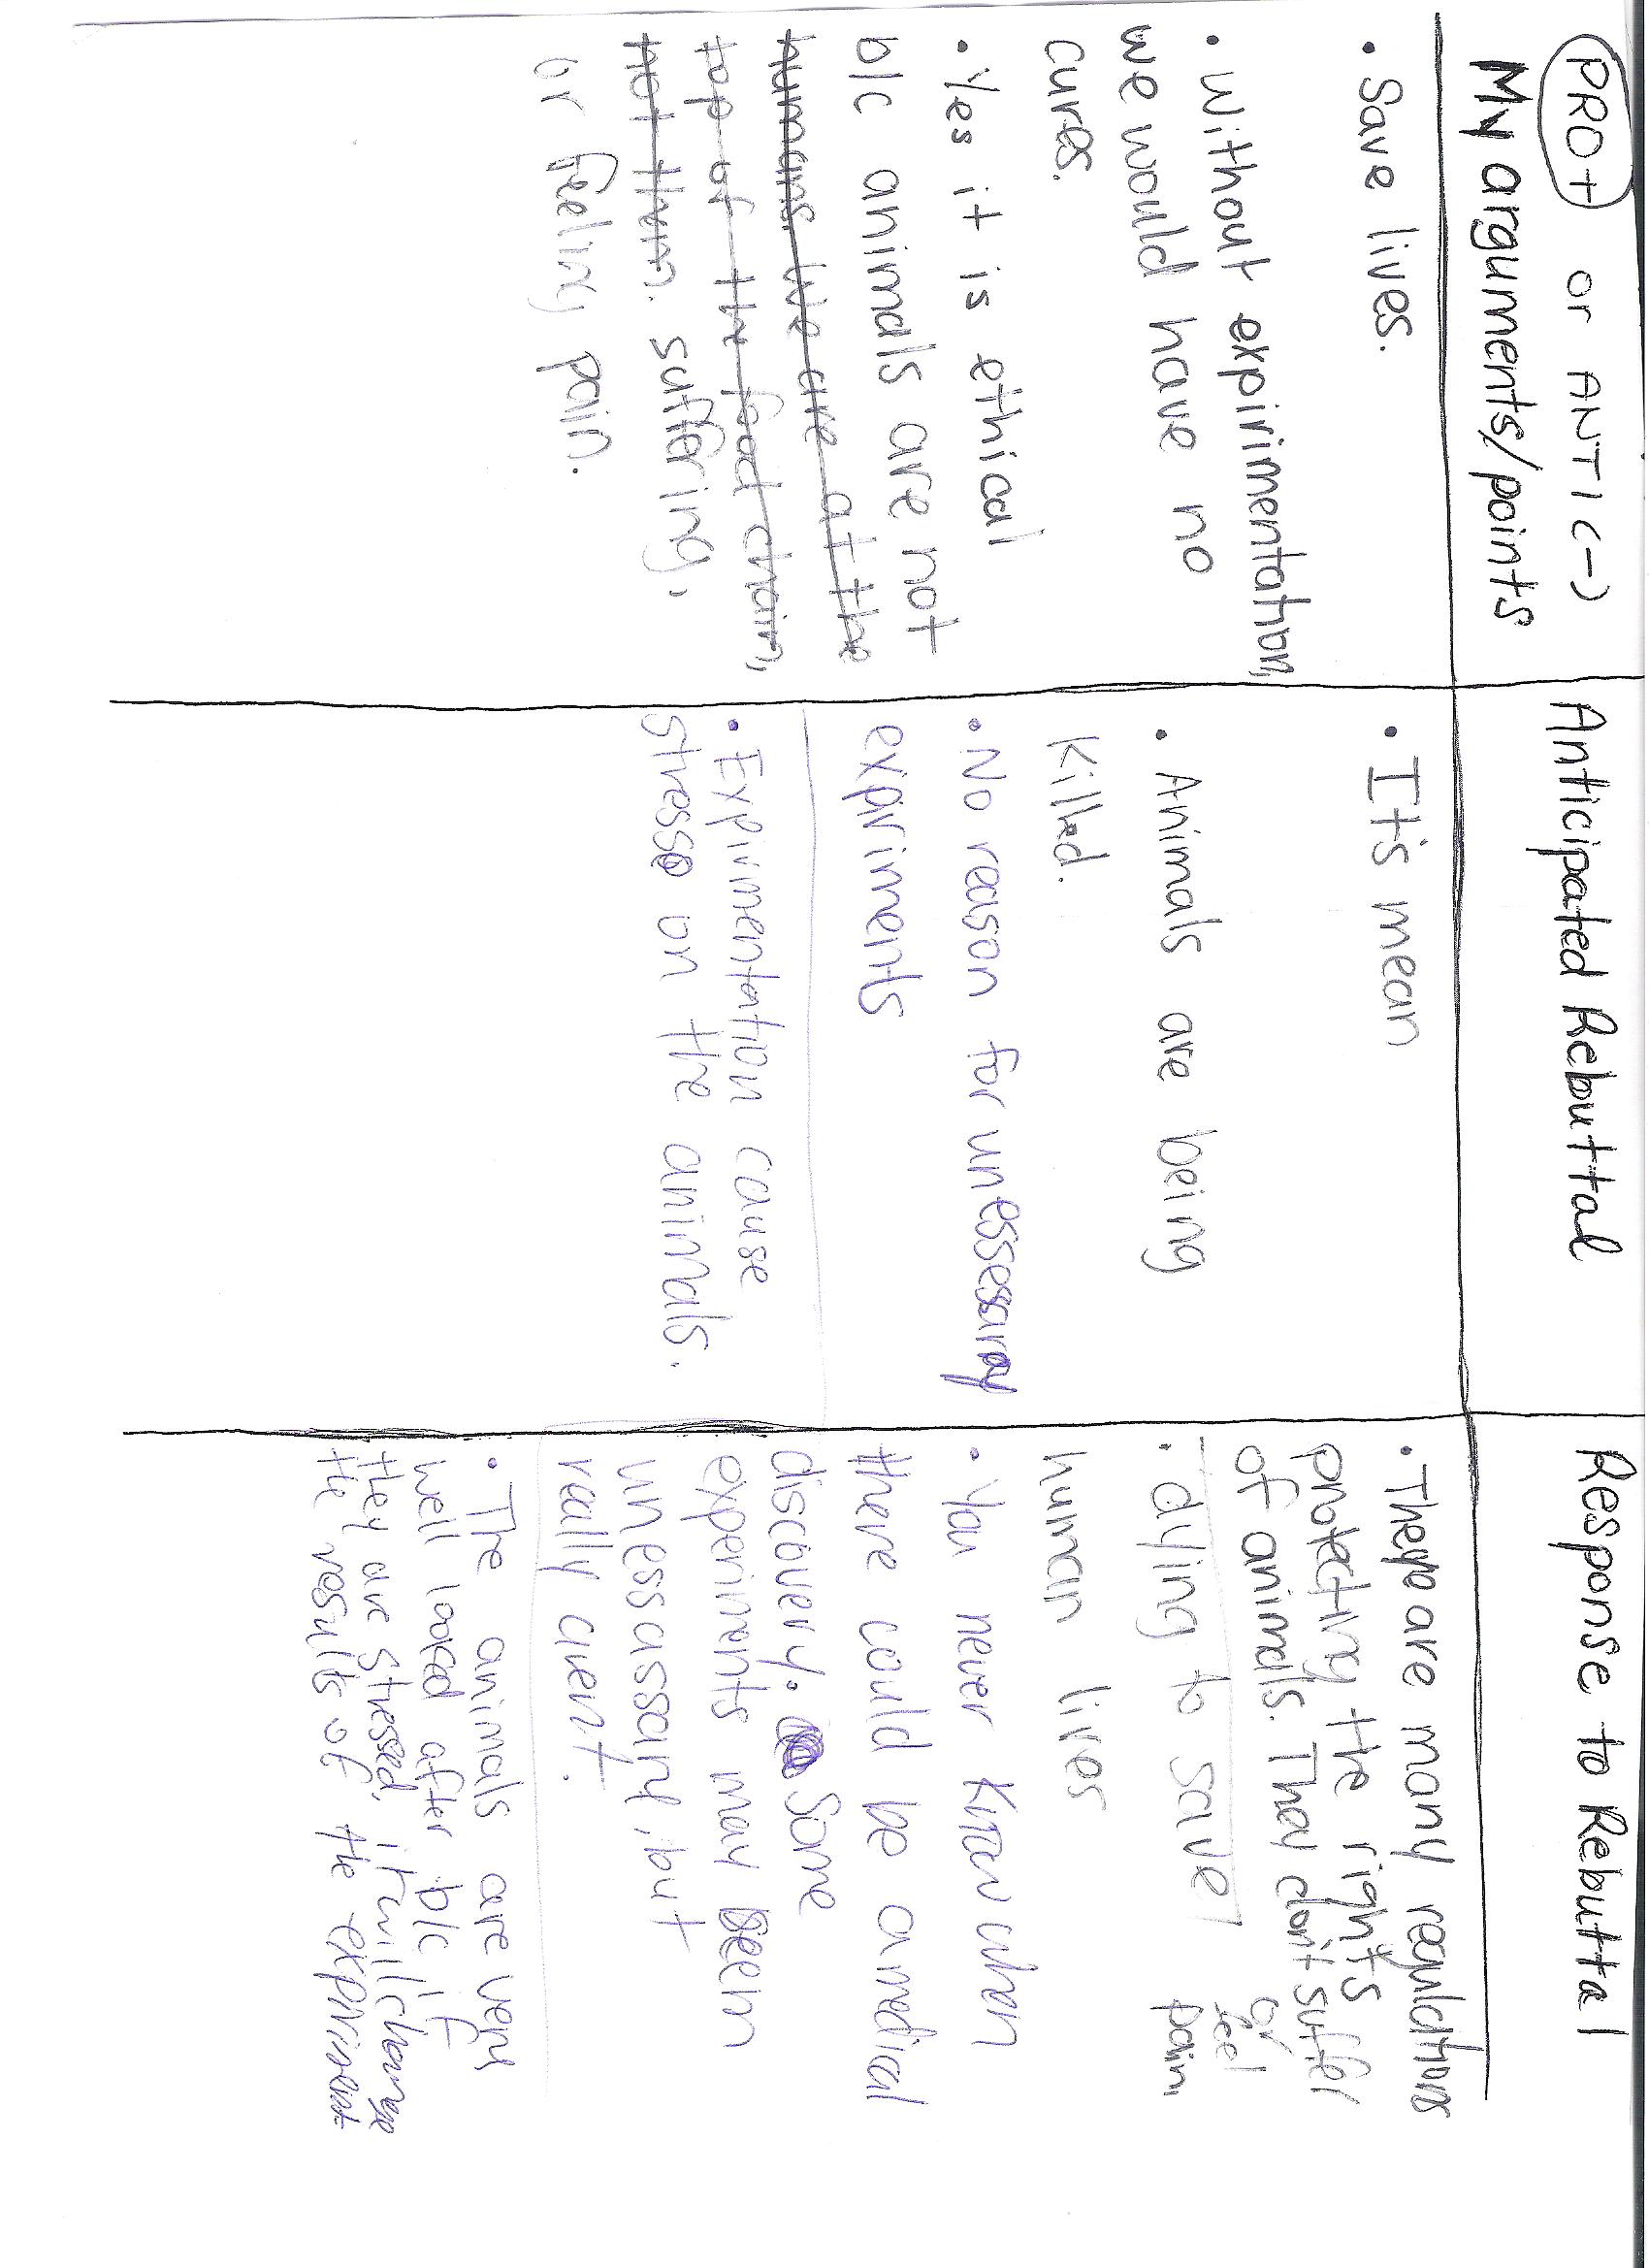 PRO+ or ANTI (-)
My arguments/points
• Save lives.
• Without expirimentation,
we would have no
cures.
• Yes it is eithical
b/c animals are not
humans. We are at the
top of the food chain,
not them. suffering,
or feeling pain.
Anticipated Rebuttal
• It's mean
• Animals are being
killed.
• No reason for unessesary
expiriments
• Expirimentation cause
stress on the animals.
Response to Rebuttal
• There are many regulations
protecting the rights
of animals. They don't suffer
or feel
pain.
• dying to save
human lives
• You never know when
there could be a medical
discovery. Some
experiments may seem
unessassary, but
really aren't.
• The animals are very
well looked after b/c if
they are stressed, it will change
the results of the expiriment